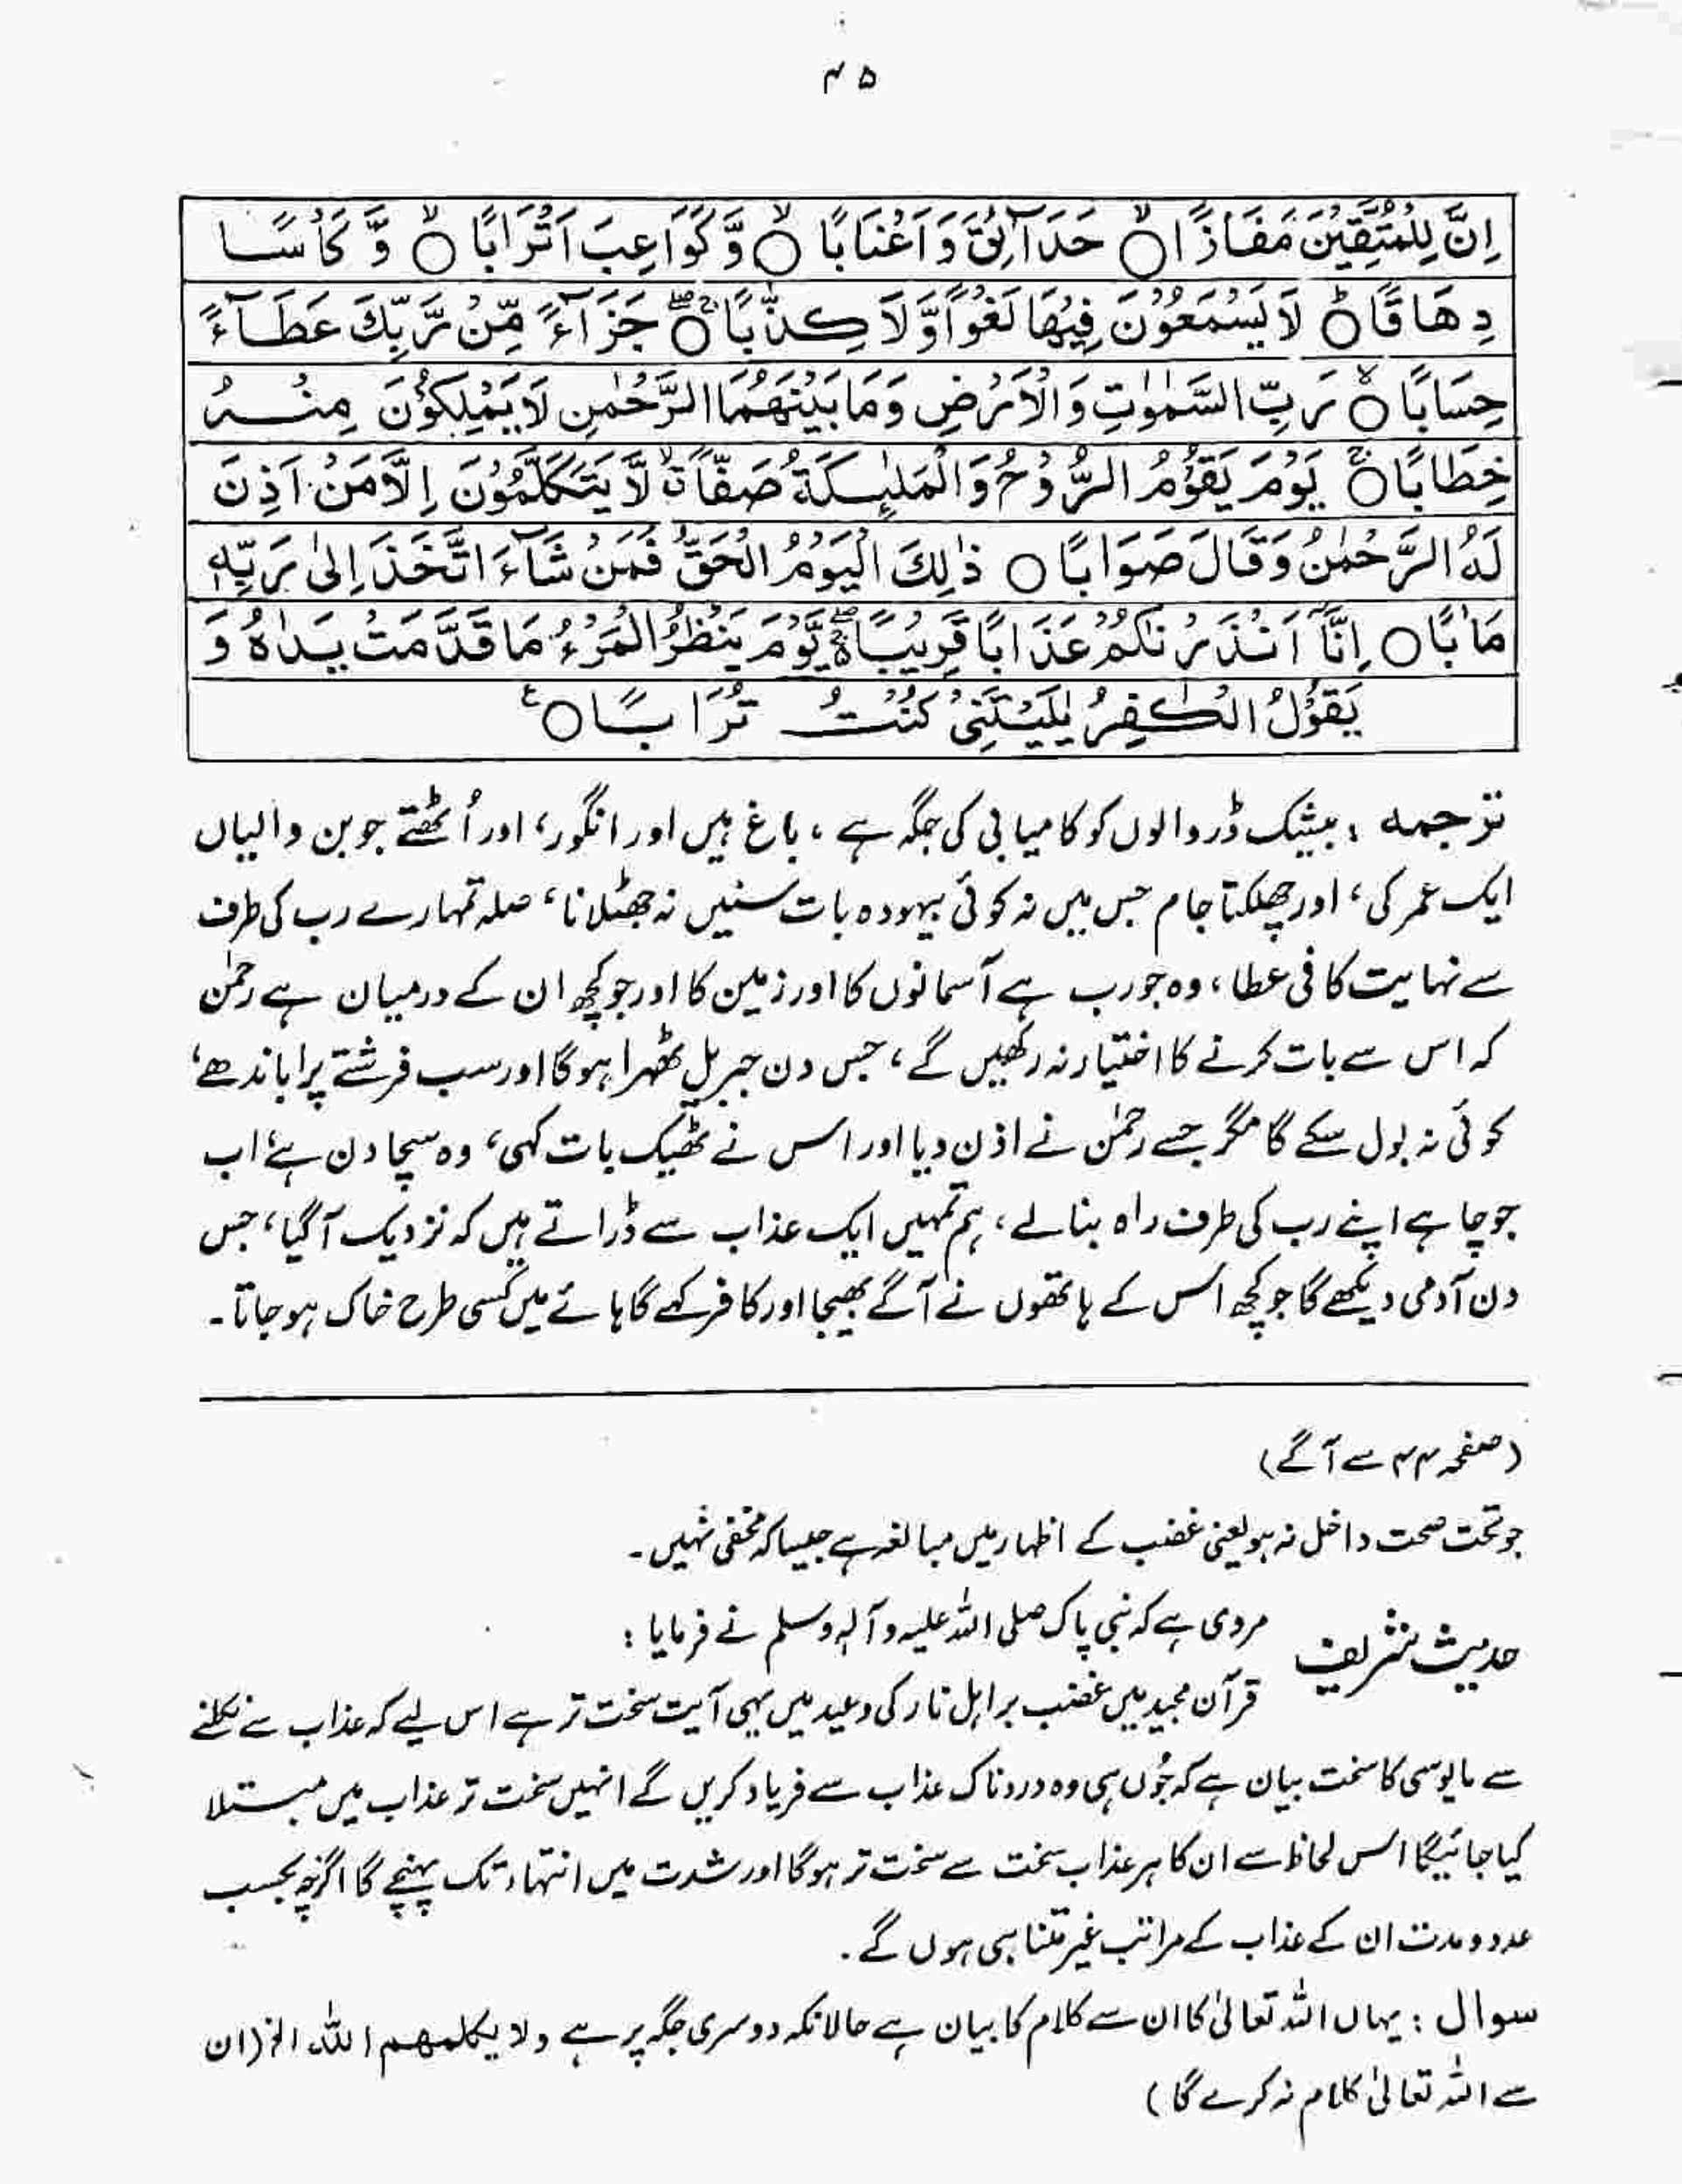 ۴۵
اِنَّ لِلْمُتَّقِيْنَ مَفَازًا ۙ حَدَآئِقَ وَاَعْنَابًا ۙ وَّكَوَاعِبَ اَتْرَابًا ۙ وَّكَاْسًا
دِهَاقًا ؕ لَا يَسْمَعُوْنَ فِيْهَا لَغْوًا وَّلَا كِذّٰبًا ۚۖ جَزَآءً مِّنْ رَّبِّكَ عَطَآءً
حِسَابًا ۙ رَبِّ السَّمٰوٰتِ وَالْاَرْضِ وَمَا بَيْنَهُمَا الرَّحْمٰنِ لَا يَمْلِكُوْنَ مِنْهُ
خِطَابًا ۚ يَوْمَ يَقُوْمُ الرُّوْحُ وَالْمَلٰٓئِكَةُ صَفًّا ۙۗ لَّا يَتَكَلَّمُوْنَ اِلَّا مَنْ اَذِنَ
لَهُ الرَّحْمٰنُ وَقَالَ صَوَابًا ○ ذٰلِكَ الْيَوْمُ الْحَقُّ ۚ فَمَنْ شَآءَ اتَّخَذَ اِلٰى رَبِّهٖ
مَاٰبًا ○ اِنَّآ اَنْذَرْنٰكُمْ عَذَابًا قَرِيْبًا ۚۖ يَّوْمَ يَنْظُرُ الْمَرْءُ مَا قَدَّمَتْ يَدٰهُ وَ
يَقُوْلُ الْكٰفِرُ يٰلَيْتَنِيْ كُنْتُ تُرَابًا ○ ع
ترجمہ : بیشک ڈر والوں کو کامیابی کی جگہ ہے ، باغ ہیں اور انگور، اور اُٹھتے جوبن والیاں
ایک عمر کی، اور چھلکتا جام جس میں نہ کوئی بیہودہ بات سنیں نہ جھٹلانا، صلہ تمہارے رب کی طرف
سے نہایت کافی عطا، وہ جو رب ہے آسمانوں کا اور زمین کا اور جو کچھ ان کے درمیان ہے رحمٰن
کہ اس سے بات کرنے کا اختیار نہ رکھیں گے، جس دن جبریل کھڑا ہوگا اور سب فرشتے پرا باندھے،
کوئی نہ بول سکے گا مگر جسے رحمٰن نے اذن دیا اور اس نے ٹھیک بات کہی، وہ سچا دن ہے، اب
جو چاہے اپنے رب کی طرف راہ بنالے، ہم تمہیں ایک عذاب سے ڈراتے ہیں کہ نزدیک آگیا، جس
دن آدمی دیکھے گا جو کچھ اس کے ہاتھوں نے آگے بھیجا اور کافر کہے گا ہائے میں کسی طرح خاک ہوجاتا۔
(صفحہ ۴۴ سے آگے)
جو تحت صحت داخل نہ ہو یعنی غضب کے اظہار میں مبالغہ ہے جیسا کہ مخفی نہیں۔
حدیث شریف مروی ہے کہ نبی پاک صلی اللہ علیہ وآلہٖ وسلم نے فرمایا :
قرآن مجید میں غضب بر اہل نار کی وعید میں یہی آیت سخت تر ہے اس لیے کہ عذاب سے نکلنے
سے مایوسی کا سخت بیان ہے کہ جُوں ہی وہ دردناک عذاب سے فریاد کریں گے انہیں سخت تر عذاب میں مبتلا
کیا جائیگا اس لحاظ سے ان کا ہر عذاب سخت سے سخت تر ہوگا اور شدت میں انتہاء تک پہنچے گا اگرچہ بحسب
عدد و مدت ان کے عذاب کے مراتب غیر متناہی ہوں گے۔
سوال : یہاں اللہ تعالیٰ کا ان سے کلام کا بیان ہے حالانکہ دوسری جگہ پر ہے ولا یکلمھم اللہ الخ (ان
سے اللہ تعالیٰ کلام نہ کرے گا)